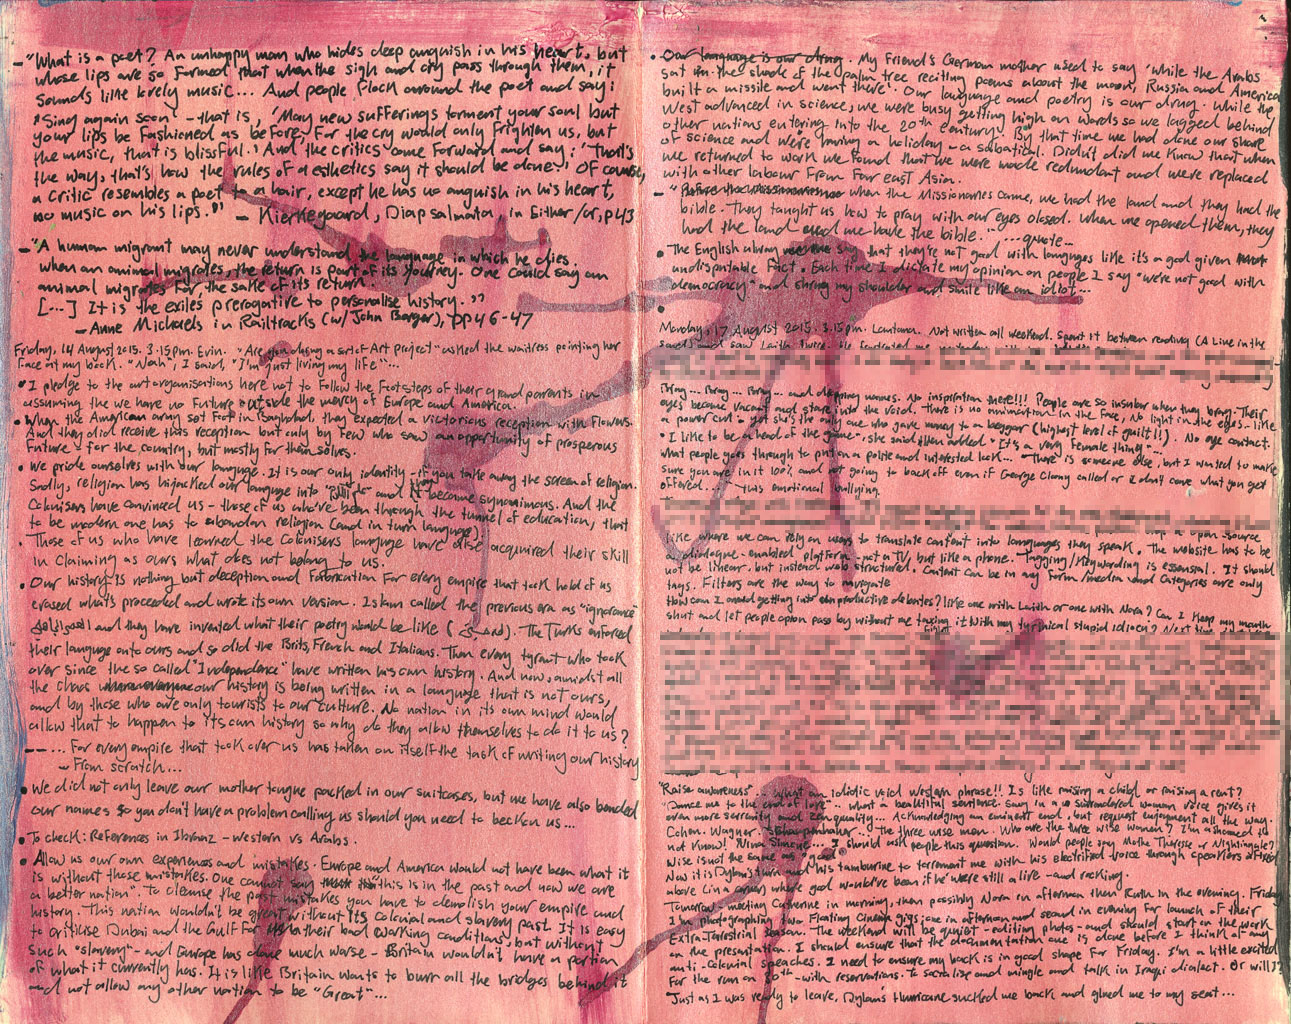 – "What is a poet? An unhappy man who hides deep anguish in his heart, but
whose lips are so formed that when the sigh and cry pass through them, it
sounds like lovely music... And people flock around the poet and say:
'Sing again soon' – that is, 'May new sufferings torment your soul but
your lips be fashioned as before. For the cry would only frighten us, but
the music, that is blissful.' And the critics come forward and say: 'That's
the way, that's how the rules of aesthetics say it should be done.' Of course,
a critic resembles a poet to a hair, except he has no anguish in his heart,
no music on his lips."
– Kierkegaard, Diapsalmata, in Either/Or, p43
– "A human migrant may never understand the language in which he dies.
when an animal migrates, the return is part of its journey. One could say an
animal migrates for the sake of its return
[...] It is the exile's prerogative to personalise history."
– Anne Michaels in Railtracks (w/ John Berger), pp46-47
Friday, 14 August 2015. 3.15pm. Evin. "Are you doing a sort of Art Project" asked the waitress pointing her
face at my book. "Nah", I said, "I'm just living my life"...
• I pledge to the art organisations here not to follow the footsteps of their grand parents in
assuming the we have no future outside the mercy of Europe and America.
• When the American army set foot in Baghdad, they expected a victorious reception with flowers.
And they did receive this reception but only by few who saw an opportunity of prosperous
future – for the country, but mostly for themselves.
• We pride ourselves with our language. It is our only identity – if you take away the screen of religion.
Sadly, religion has hijacked our language into and it became synonimous. And the
Colonisers have convinced us – those of us who've been through the tunnel of education, that
to be modern one has to abandon religion (and in turn language).
• Those of us who have learned the Colonisers language have also acquired their skill
in claiming as ours what does not belong to us.
• Our history is nothing but deception and fabrication for every empire that took hold of us
erased what's proceeded and wrote its own version. Islam called the previous era as "ignorance"
and they have invented what their poetry would be like. The Turks enforced
their language onto ours and so did the Brits, French and Italians. Then every tyrant who took
over since the so called "Independence" have written his own history. And now, amidst all
the chaos our history is being written in a language that is not ours,
and by those who are only tourists to our culture. No nation in its own mind would
allow that to happen to its own history so why do they allow themselves to do it to us?
––... For every empire that took over us has taken on itself the task of writing our history
– From scratch...
• We did not only leave our mother tongue packed in our suitcases, but we have also bended
our names so you don't have a problem calling us should you need to beckon us...
• To check: References in Ibraaz – Western vs Arabs.
• Allow us our own experiences and mistakes. Europe and America would not have been what it
is without those mistakes. One cannot say "this is in the past and now we are
a better nation". To cleanse the past mistakes you have to demolish your empire and
history. This nation wouldn't be great without its colonial and slavery past. It is easy
to criticise Dubai and the Gulf for their bad working conditions, but without
such "slavery" – and Europe has done much worse – Britain wouldn't have a portion
of what it currently has. It is like Britain wants to burn all the bridges behind it
and not allow any other nation to be "Great"...
• Our language is our drug. My Friend's German mother used to say 'while the Arabs
sat in the shade of the palm tree reciting poems about the moon, Russia and America
built a missile and went there'. Our language and poetry is our drug. While the
West advanced in science, we were busy getting high on words so we lagged behind
other nations entering into the 20th century. By that time we had done our share
of science and we're having a holiday – a sabatical. Didn't did me know that when
we returned to work we found that we were made redundant and were replaced
with other labour from Far east Asia.
– "when the Missionaries came, we had the land and they had the
bible. They taught us how to pray with our eyes closed. When we opened them, they
had the land and we have the bible." ....quote...
• The English always say that they're not good with languages like it's a god given
undisputable fact. Each time I dictate my opinion on people I say "we're not good with
democracy" and shrug my shoulder and smile like an idiot...
•
Monday, 17 August 2015. 3.15pm. Lantana. Not written all weekend. Spent it between reading (A Line in the
Bring... Bring... Bring... and dropping names. No inspiration there!!! People are so insular when they bring. Their
eyes become vacant and stare into the void. There is no animation in the face, no light in the eyes – like
a power cut. She's the only one who gave money to a beggar (highest level of guilt!!). No eye contact.
"I like to be ahead of the game", she said then added "It's a very female thing"...
what people goes through to put on a polite and interested look... "There is someone else, but I wanted to make
sure you are in it 100% and not going to back off even if George Clony called or I don't care what you get
offered..." this emotional bullying.
like where we can rely on users to translate content into languages they speak. The website has to be
a dialogue-enabled platform – not a TV, but like a phone. Tagging/keywording is essential. It should
not be linear, but instead web structured. Content can be in any form/media and Categories are only
tags. Filters are the way to navigate
How can I avoid getting into unproductive debates? like one with Laith or one with Nora? Can I keep my mouth
shut and let people opion pass by without me taxing it with my tyrinical stupid idiocy?
"Raise awareness".. what an ididic void Western phrase!! Is like raising a child or raising a rent?
"Dance me to the end of love".. what a beautiful sentence. Say in a surrendered woman voice gives it
even more serenity and zen quality... Acknowledging an eminent end, but request enjoyment all the way.
Cohen. Wagner. Schopenhauer... The three wise men. Who are the three wise women? I'm ashamed to
not know! "Nina Simone"... I should ask people this question. Would people say Mother Therese or Nightingale?
Wise is not the same as "good"
Now it is Dylan's turn and his tamburine to torment me with his electrified voice through speakers affixed
above (in a corner) where god would've been if he were still alive – and rocking.
Tomorrow – meeting Catherine in morning, then possibly Nora in afternoon then Ruth in the evening. Friday
I'm photographing two Floating Cinema gigs: one in afternoon and second in evening for launch of their
Extra-Terrestrial Season. The weekend will be quiet – editing photos – and should start on the work
on the presentation. I should ensure that the documentation one is done before I think of my
anti-Colonial speaches. I need to ensure my back is in good shape for Friday. I'm a little excited
for the run on 20th – with reservations. To socialise and mingle and talk in Iraqi dialect. Or will I?
Just as I was ready to leave, Dylan's Hurricane sucked me back and glued me to my seat...